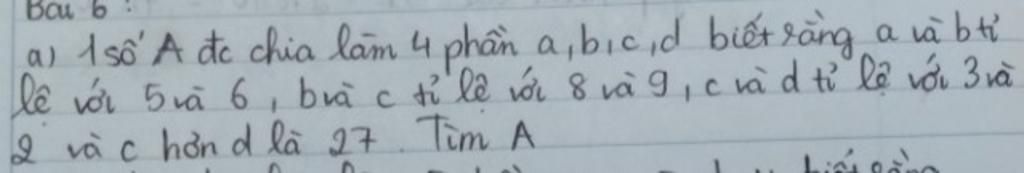 Bài 6:
a) 1 số A đc chia làm 4 phần a, b, c, d biết rằng a và b tỉ
lệ với 5 và 6, b và c tỉ lệ với 8 và 9, c và d tỉ lệ với 3 và
2 và c hơn d là 27. Tìm A
biết rằng